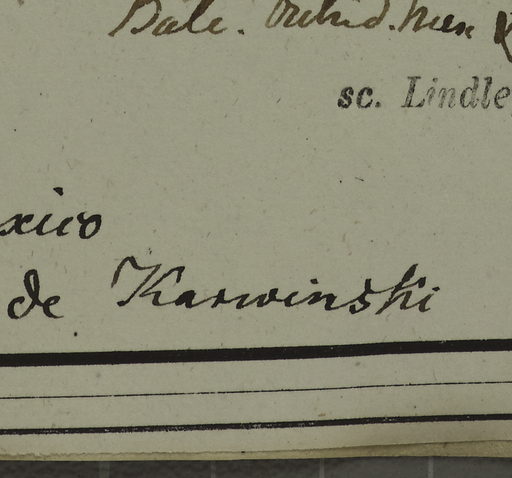 Bate. Orchid. Mex &
sc. Lindle
xico
de Karwinski